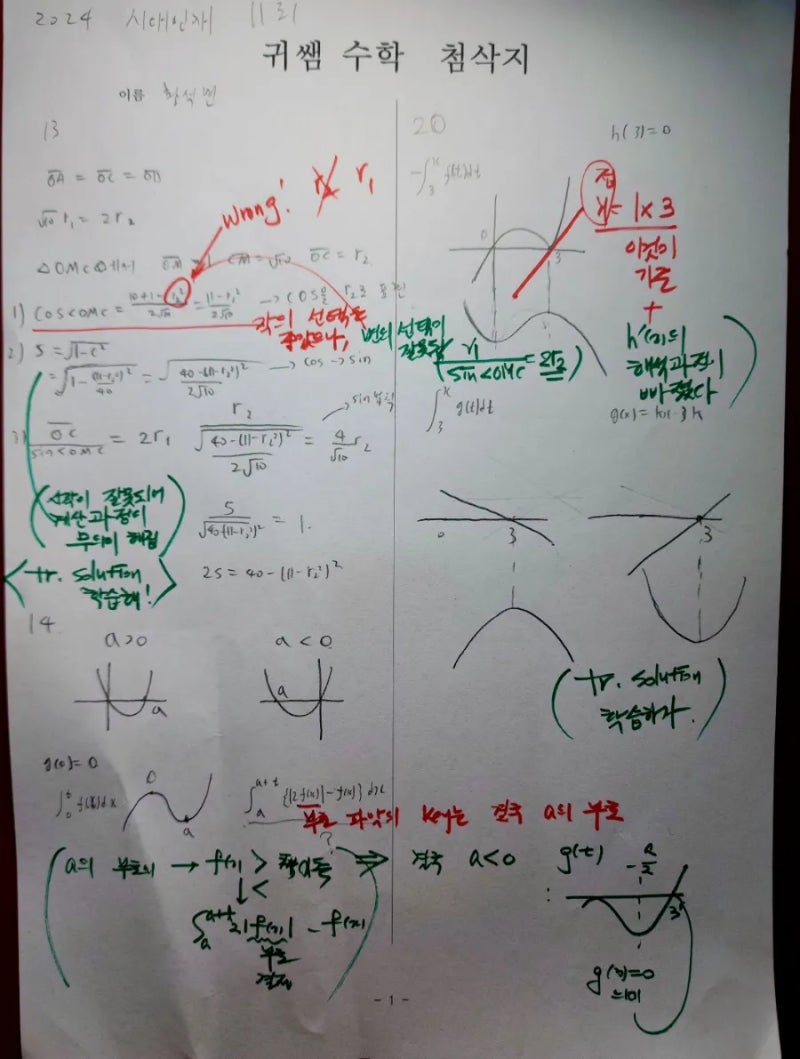 2024 시대인재 11회
귀쌤 수학 첨삭지
이름
13
OA = OC = OB
√10 r₁ = 2r₂
wrong! r₁
△OMC에서 OM = 1 CM = √10 OC = r₂
1) cos<OMC = (10+1-r₂²)/(2√10) = (11-r₂²)/(2√10) → cos을 r₂로 표현
각의 선택은 좋았으나, 변의 선택이 잘못됨
(r₁/(sin<OMC) = 2r₂)
2) S = √(1-c²)
= √(1-(11-r₂²)²/40) = √(40-(11-r₂²)²)/(2√10) → cos → sin
3) OC/(sin<OMC) = 2r₁ r₂/(√(40-(11-r₂²)²)/(2√10)) = (4/√10)r₂ → sin법칙
(시작이 잘못되어
계산과정이
무의미 해짐)
5/√(40-(11-r₂²)²) = 1.
25 = 40-(11-r₂²)²
<tr. solution
학습해!>
14.
a>0 a<0
a a
g(0)=0
∫₀ᵗ f(x)dx
0
a
∫ₐᵃ⁺ᵗ {|2f(x)|-f(x)}dx
부호 파악의 key는 결국 a의 부호
(a의 부호의 → f(x) > ?
<
∫ₐᵃ⁺ᵗ 2|f(x)| - f(x)
부호
결정)
⇒ 결국 a<0 g(t)
-a/2
3
g(3)=0
의미
20
h(3)=0
-∫₃ˣ f(t)dt
0 3
접
x=1×3
이것이
기준
+
h'(x)의
해석과정이
빠졌다
∫₃ˣ g(t)dt
0 3 3
(tr. solution
학습하자.)
- 1 -